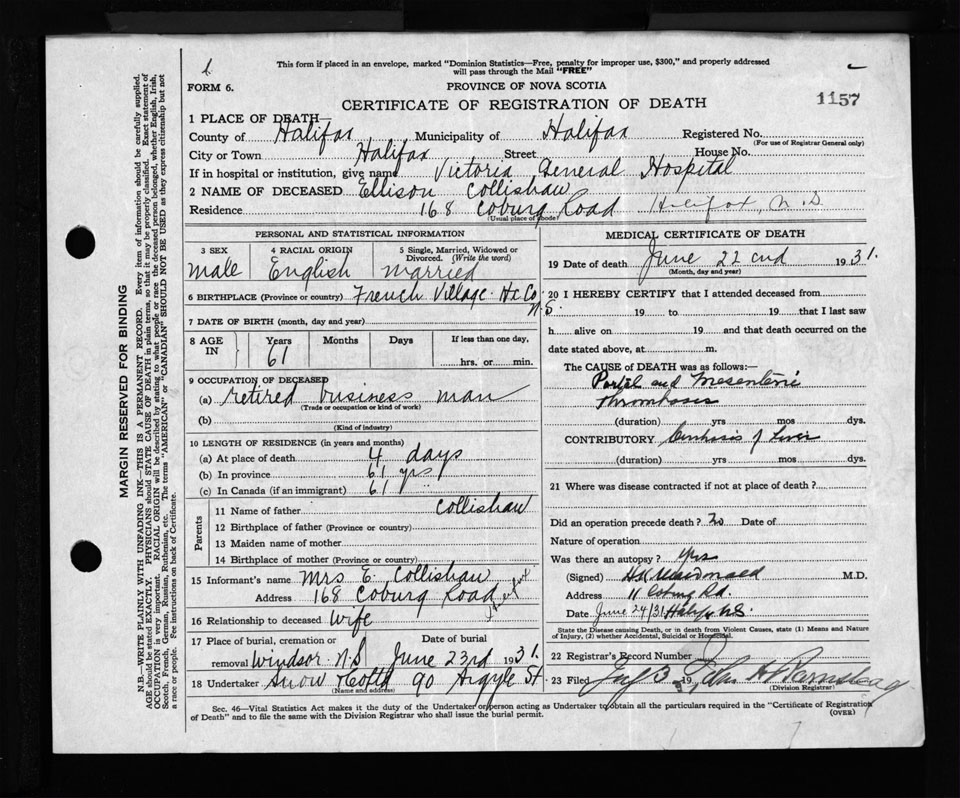 This form if placed in an envelope, marked "Dominion Statistics—Free, penalty for improper use, $300," and properly addressed
will pass through the Mail "FREE"
FORM 6.
PROVINCE OF NOVA SCOTIA
CERTIFICATE OF REGISTRATION OF DEATH
1157
1 PLACE OF DEATH—
County of Halifax Municipality of Halifax Registered No.
(For use of Registrar General only)
City or Town Halifax Street House No.
If in hospital or institution, give name Victoria General Hospital
2 NAME OF DECEASED Ellison Collishaw
Residence 168 Coburg Road Halifax, N.S.
(Usual place of abode)
PERSONAL AND STATISTICAL INFORMATION
3 SEX 4 RACIAL ORIGIN 5 Single, Married, Widowed or Divorced. (Write the word)
Male English married
6 BIRTHPLACE (Province or country) French Village Hx Co N.S.
7 DATE OF BIRTH (month, day and year)
8 AGE IN Years Months Days If less than one day,
61 hrs. or min.
9 OCCUPATION OF DECEASED
(a) retired business man
(Trade or occupation or kind of work)
(b)
(Kind of industry)
10 LENGTH OF RESIDENCE (in years and months)
(a) At place of death 4 days
(b) In province 61 yrs
(c) In Canada (if an immigrant) 61
Parents
11 Name of father Collishaw
12 Birthplace of father (Province or country)
13 Maiden name of mother
14 Birthplace of mother (Province or country)
15 Informant's name Mrs E. Collishaw
Address 168 Coburg Road
16 Relationship to deceased Wife
17 Place of burial, cremation or Date of burial
removal Windsor N.S June 23rd 1931.
18 Undertaker Snow & Co Ltd 90 Argyle St
(Name and address)
MEDICAL CERTIFICATE OF DEATH
19 Date of death June 22 nd 1931.
(Month, day and year)
20 I HEREBY CERTIFY that I attended deceased from
19 to 19 that I last saw
h alive on 19 and that death occurred on the
date stated above, at m.
The CAUSE OF DEATH was as follows:—
Portal and Mesenteric
Thrombosis
(duration) yrs mos dys.
CONTRIBUTORY Cirrhosis of Liver
(duration) yrs mos dys.
21 Where was disease contracted if not at place of death?
Did an operation precede death? No Date of
Nature of operation
Was there an autopsy? Yes
(Signed) M.D.
Address Rd.
Date June 24/31 Halifax N.S.
State the Disease causing Death, or in death from Violent Causes, state (1) Means and Nature
of Injury, (2) whether Accidental, Suicidal or Homicidal.
22 Registrar's Record Number
23 Filed July 3 19
(Division Registrar)
Sec. 46—Vital Statistics Act makes it the duty of the Undertaker or person acting as Undertaker to obtain all the particulars required in the "Certificate of Registration
of Death" and to file the same with the Division Registrar who shall issue the burial permit.
(OVER)
MARGIN RESERVED FOR BINDING
N.B.—WRITE PLAINLY WITH UNFADING INK—THIS IS A PERMANENT RECORD. Every item of information should be carefully supplied.
AGE should be stated EXACTLY. PHYSICIANS should STATE CAUSE OF DEATH in plain terms, so that it may be properly classified. Exact statement of
OCCUPATION is very important. RACIAL ORIGIN will be described by stating to what people or race the deceased person belonged, whether English, Irish,
Scotch, French, German, Russian, Ruthenian, etc. The terms "AMERICAN" or "CANADIAN" SHOULD NOT BE USED as they express citizenship but not
a race or people. Fee instructions on back of Certificate.